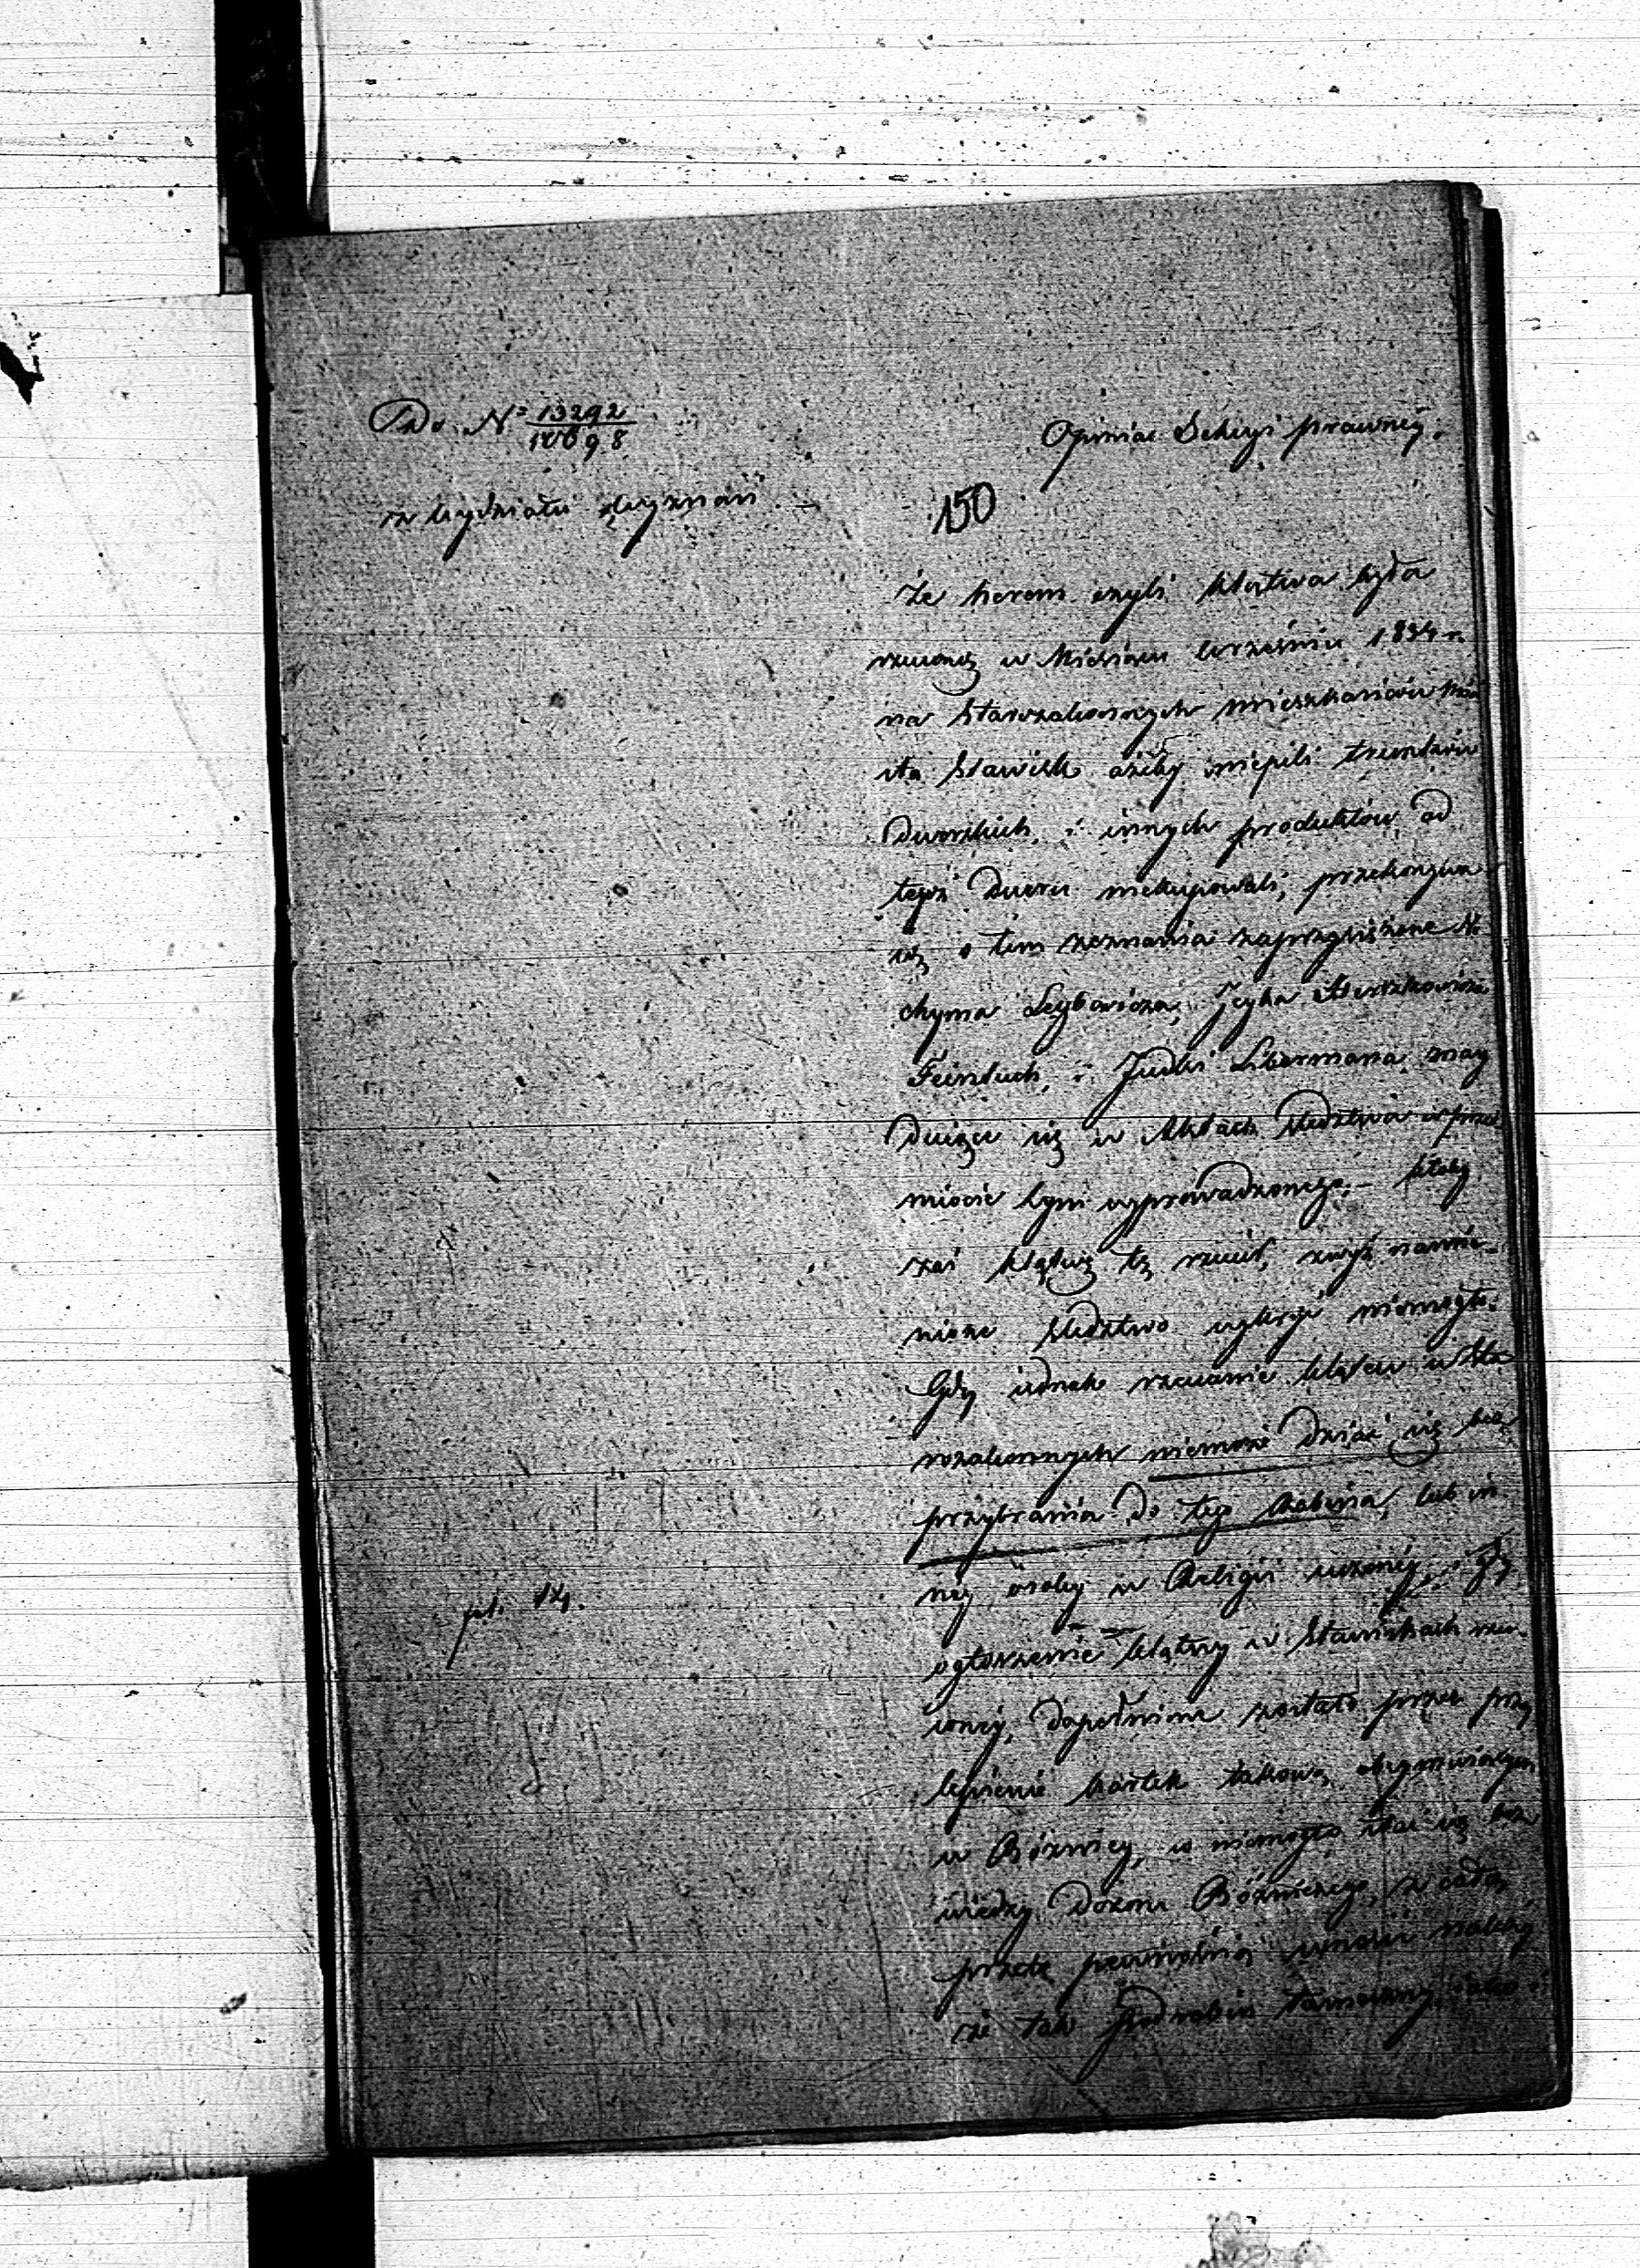 Do Nº 13292
14698
z Wydziału Wyznań
Opinia Sekcyi prawnéy.
150
Że herem czyli klątwa była
rzuconą w Miesiącu Wrześniu 1834 r.
na Starozakonnych mieszkańców Mia
sta Stawisk ażeby niepili trunków
dworskich i innych produktów od
tegoż dworu niekupowali, przekonywa
ią o tem zeznania zaprzysiężone N
chyma Leybowicza, Icyka Herszkowicza
Feinduch, i Judki Libermana, znay
duiące się w Aktach śledztwa w przed
miocie tym wyprowadzonego. – ktoby
zaś klątwę tę rzucił, zwyż namie-
nione śledztwo wykryć niemogło.
Gdy iednak rzucanie klątw u Sta
rozakonnych niemoże dziać się bez
przybrania do tego Rabina, lub in
néy osoby w Religii uczonéy, i gdy
ogłoszenie klątwy w Stawiskach rzu-
conéy, dopełnione zostało przez przy
lepienie kartek takową obeymuiących
w Bóżnicy, co niemogło stać się bez
wiedzy Dozoru Bóżniczego, z całą
przeto pewnością wnosić należy
że tak Podrabin tameczny iako i
pt. 14.